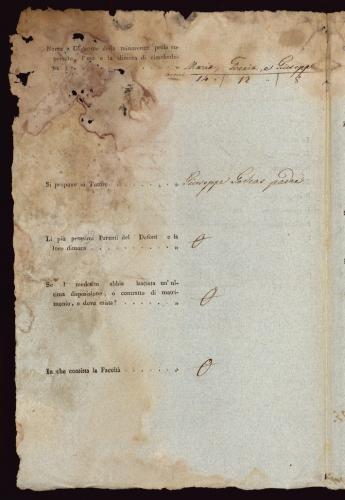 Nome e Cognome della minorenne prole su-
perstite, l'età e la dimora di ciaschedu-
Maria, Teresa, e Giuseppe
anni 14 12 8
Si propone in Tutore
Giuseppe padre
Li più prossimi Parenti del Defont e la
loro dimora " O
Se l medesim abbia lasciata un'ul-
tima disposizione, o contratto di matri-
monio, e dove esista? " O
In che consista la Facoltà " O